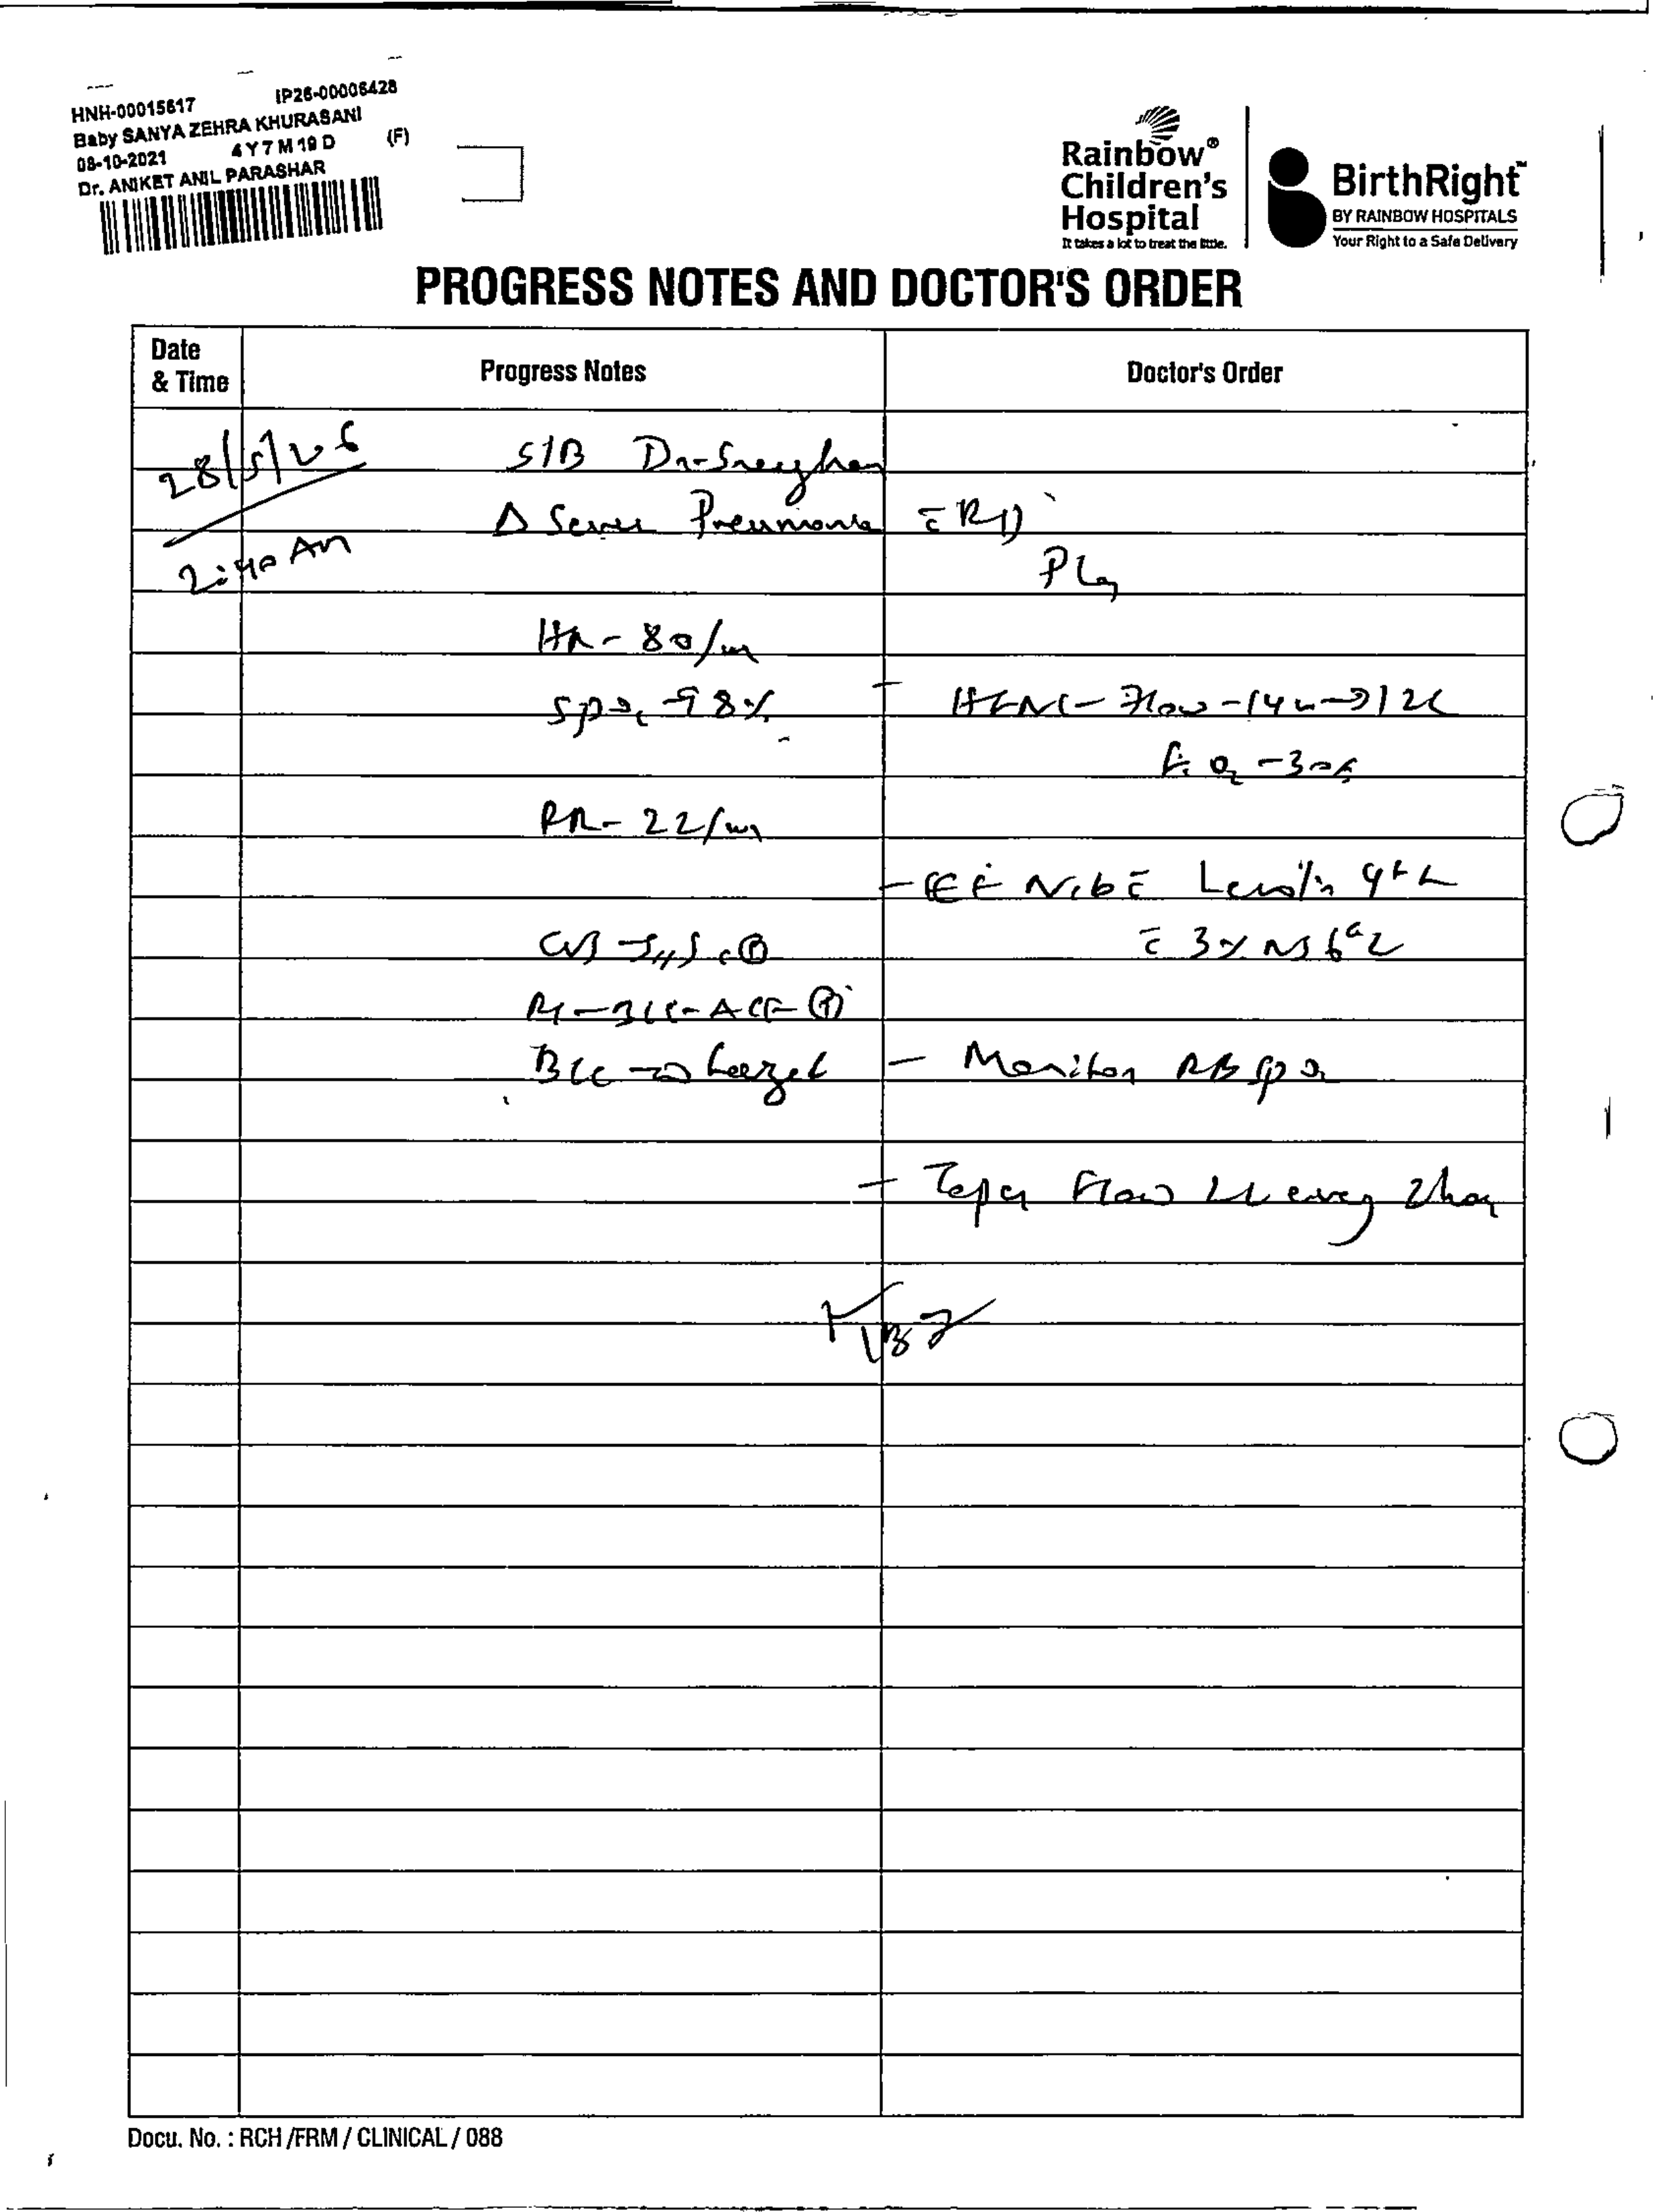 HNH-00015617 IP26-00006428
Baby SANYA ZEHRA KHURASANI
08-10-2021 4 Y 7 M 19 D (F)
Dr. ANIKET ANIL PARASHAR
Rainbow®
Children's
Hospital
It takes a lot to treat the little.
BirthRight™
BY RAINBOW HOSPITALS
Your Right to a Safe Delivery
PROGRESS NOTES AND DOCTOR'S ORDER
Date
& Time
Progress Notes
Doctor's Order
28/5/26
S/B Dr.
Δ Severe Pneumonia c̄ RD
2:40 AM
Plan
HR - 80/m
SpO2 - 98%
- HFNC - Flow - 14L → 12L
FiO2 - 30%
RR - 22/m
- Neb c̄ Levolin
CVS - S1S2 ⊕
c̄ 3% NS
RS - B/L - AE ⊕
B/L
- Monitor SpO2
- Taper Flow every 2 hour
Docu. No. : RCH /FRM / CLINICAL / 088